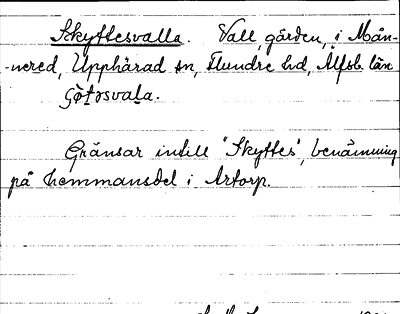 Skyttesvalla. Vall, gården, i Mån-
-nered, Upphärad sn, Flundre hd, Älfsb. län
Gränsar intill "Skyttes", benämning
på hemmansdel i Artorp.